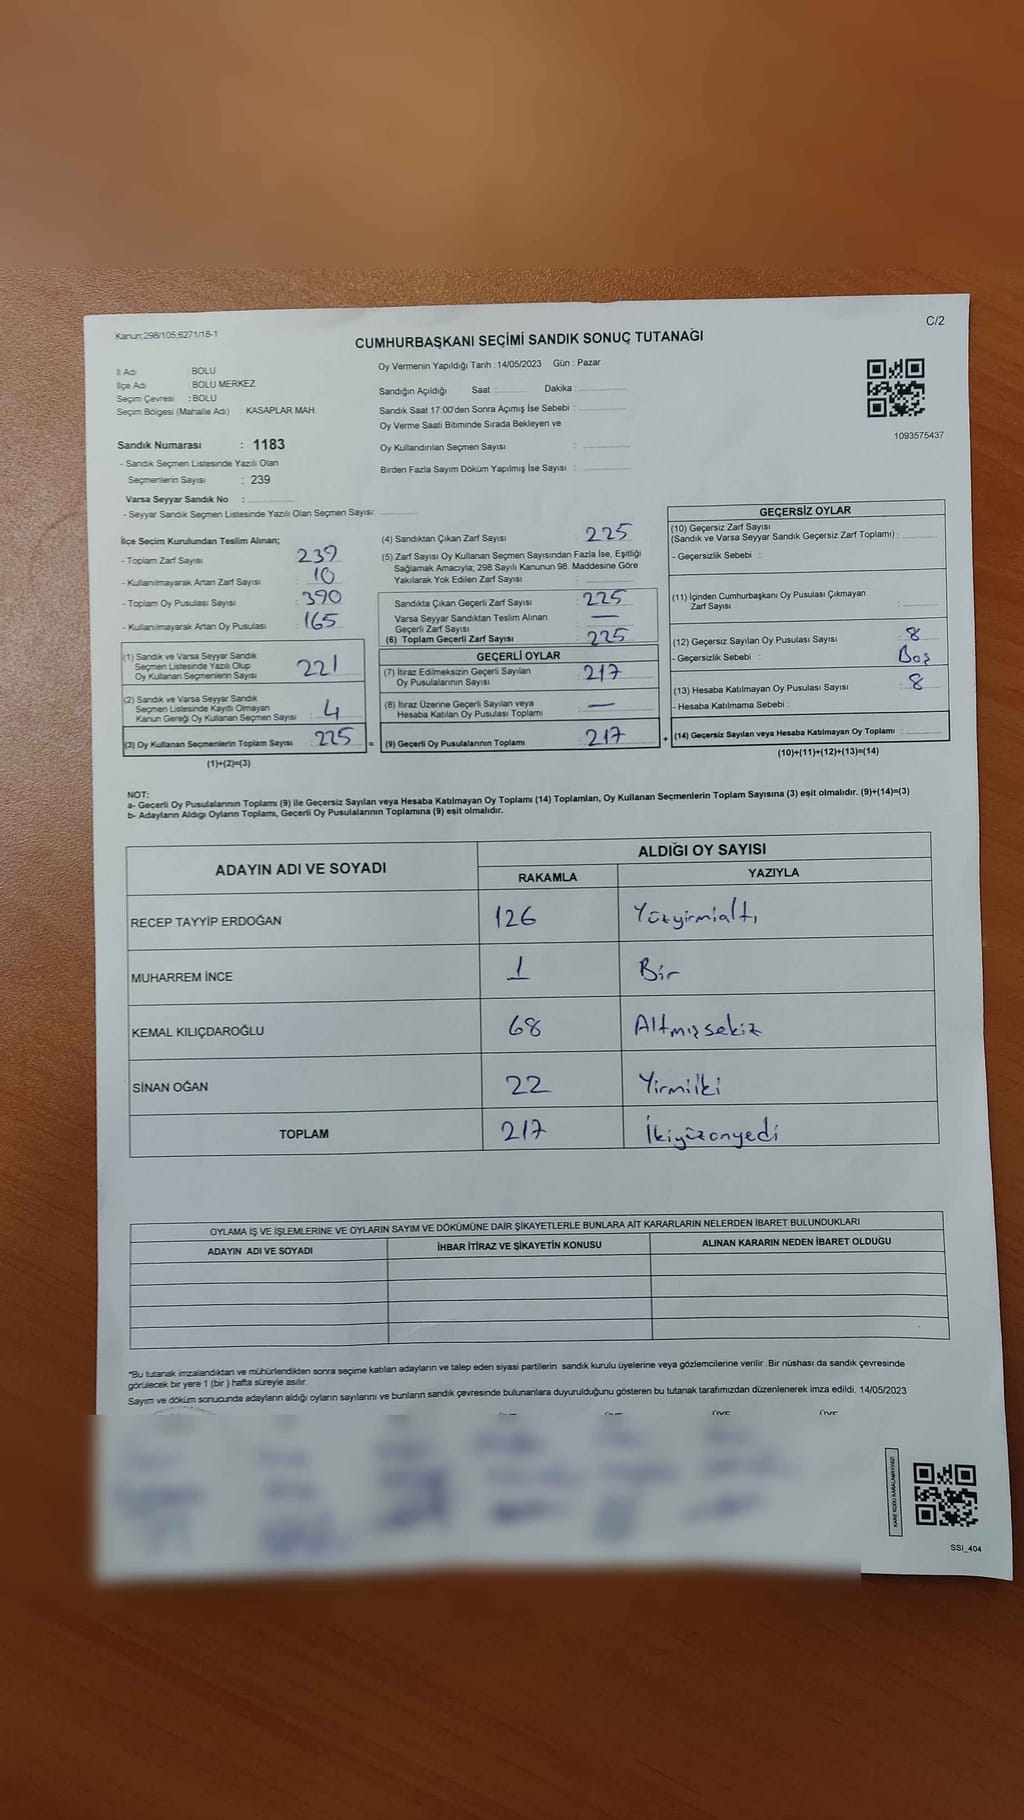 Kanun;298/105;6271/18-1
C/2
CUMHURBAŞKANI SEÇİMİ SANDIK SONUÇ TUTANAĞI
İl Adı : BOLU
İlçe Adı : BOLU MERKEZ
Seçim Çevresi : BOLU
Seçim Bölgesi (Mahalle Adı) : KASAPLAR MAH.
Oy Vermenin Yapıldığı Tarih :14/05/2023 Gün : Pazar
Sandığın Açıldığı Saat : Dakika :
Sandık Saat 17:00'den Sonra Açımış İse Sebebi :
Oy Verme Saati Bitiminde Sırada Bekleyen ve
Oy Kullandırılan Seçmen Sayısı :
Birden Fazla Sayım Döküm Yapılmış İse Sayısı :
1093575437
Sandık Numarası : 1183
- Sandık Seçmen Listesinde Yazılı Olan
Seçmenlerin Sayısı : 239
Varsa Seyyar Sandık No :
- Seyyar Sandık Seçmen Listesinde Yazılı Olan Seçmen Sayısı:
İlçe Seçim Kurulundan Teslim Alınan;
- Toplam Zarf Sayısı : 239
- Kullanılmayarak Artan Zarf Sayısı : 10
- Toplam Oy Pusulası Sayısı : 390
- Kullanılmayarak Artan Oy Pusulası : 165
(1) Sandık ve Varsa Seyyar Sandık
Seçmen Listesinde Yazılı Olup
Oy Kullanan Seçmenlerin Sayısı : 221
(2) Sandık ve Varsa Seyyar Sandık
Seçmen Listesinde Kayıtlı Olmayan
Kanun Gereği Oy Kullanan Seçmen Sayısı : 4
(3) Oy Kullanan Seçmenlerin Toplam Sayısı : 225
(1)+(2)=(3)
(4) Sandıktan Çıkan Zarf Sayısı : 225
(5) Zarf Sayısı Oy Kullanan Seçmen Sayısından Fazla İse, Eşitliği
Sağlamak Amacıyla; 298 Sayılı Kanunun 98. Maddesine Göre
Yakılarak Yok Edilen Zarf Sayısı :
Sandıkta Çıkan Geçerli Zarf Sayısı : 225
Varsa Seyyar Sandıktan Teslim Alınan
Geçerli Zarf Sayısı : —
(6) Toplam Geçerli Zarf Sayısı : 225
GEÇERLİ OYLAR
(7) İtiraz Edilmeksizin Geçerli Sayılan
Oy Pusulalarının Sayısı : 217
(8) İtiraz Üzerine Geçerli Sayılan veya
Hesaba Katılan Oy Pusulası Toplamı : —
= (9) Geçerli Oy Pusulalarının Toplamı : 217
GEÇERSİZ OYLAR
(10) Geçersiz Zarf Sayısı
(Sandık ve Varsa Seyyar Sandık Geçersiz Zarf Toplamı) :
- Geçersizlik Sebebi :
(11) İçinden Cumhurbaşkanı Oy Pusulası Çıkmayan
Zarf Sayısı :
(12) Geçersiz Sayılan Oy Pusulası Sayısı : 8
- Geçersizlik Sebebi : Boş
(13) Hesaba Katılmayan Oy Pusulası Sayısı : 8
- Hesaba Katılmama Sebebi :
+ (14) Geçersiz Sayılan veya Hesaba Katılmayan Oy Toplamı :
(10)+(11)+(12)+(13)=(14)
NOT:
a- Geçerli Oy Pusulalarının Toplamı (9) ile Geçersiz Sayılan veya Hesaba Katılmayan Oy Toplamı (14) Toplamları, Oy Kullanan Seçmenlerin Toplam Sayısına (3) eşit olmalıdır. (9)+(14)=(3)
b- Adayların Aldığı Oyların Toplamı, Geçerli Oy Pusulalarının Toplamına (9) eşit olmalıdır.
ADAYIN ADI VE SOYADI ALDIĞI OY SAYISI
RAKAMLA YAZIYLA
RECEP TAYYİP ERDOĞAN 126 Yüzyirmialtı
MUHARREM İNCE 1 Bir
KEMAL KILIÇDAROĞLU 68 Altmışsekiz
SİNAN OĞAN 22 Yirmiiki
TOPLAM 217 İkiyüzonyedi
OYLAMA İŞ VE İŞLEMLERİNE VE OYLARIN SAYIM VE DÖKÜMÜNE DAİR ŞİKAYETLERLE BUNLARA AİT KARARLARIN NELERDEN İBARET BULUNDUKLARI
ADAYIN ADI VE SOYADI İHBAR İTİRAZ VE ŞİKAYETİN KONUSU ALINAN KARARIN NEDEN İBARET OLDUĞU
*Bu tutanak imzalandıktan ve mühürlendikten sonra seçime katılan adayların ve talep eden siyasi partilerin sandık kurulu üyelerine veya gözlemcilerine verilir .Bir nüshası da sandık çevresinde
görülecek bir yere 1 (bir ) hafta süreyle asılır.
Sayım ve döküm sonucunda adayların aldığı oyların sayılarını ve bunların sandık çevresinde bulunanlara duyurulduğunu gösteren bu tutanak tarafımızdan düzenlenerek imza edildi. 14/05/2023
KARE KODU KARALAMAYINIZ!
SSI_404